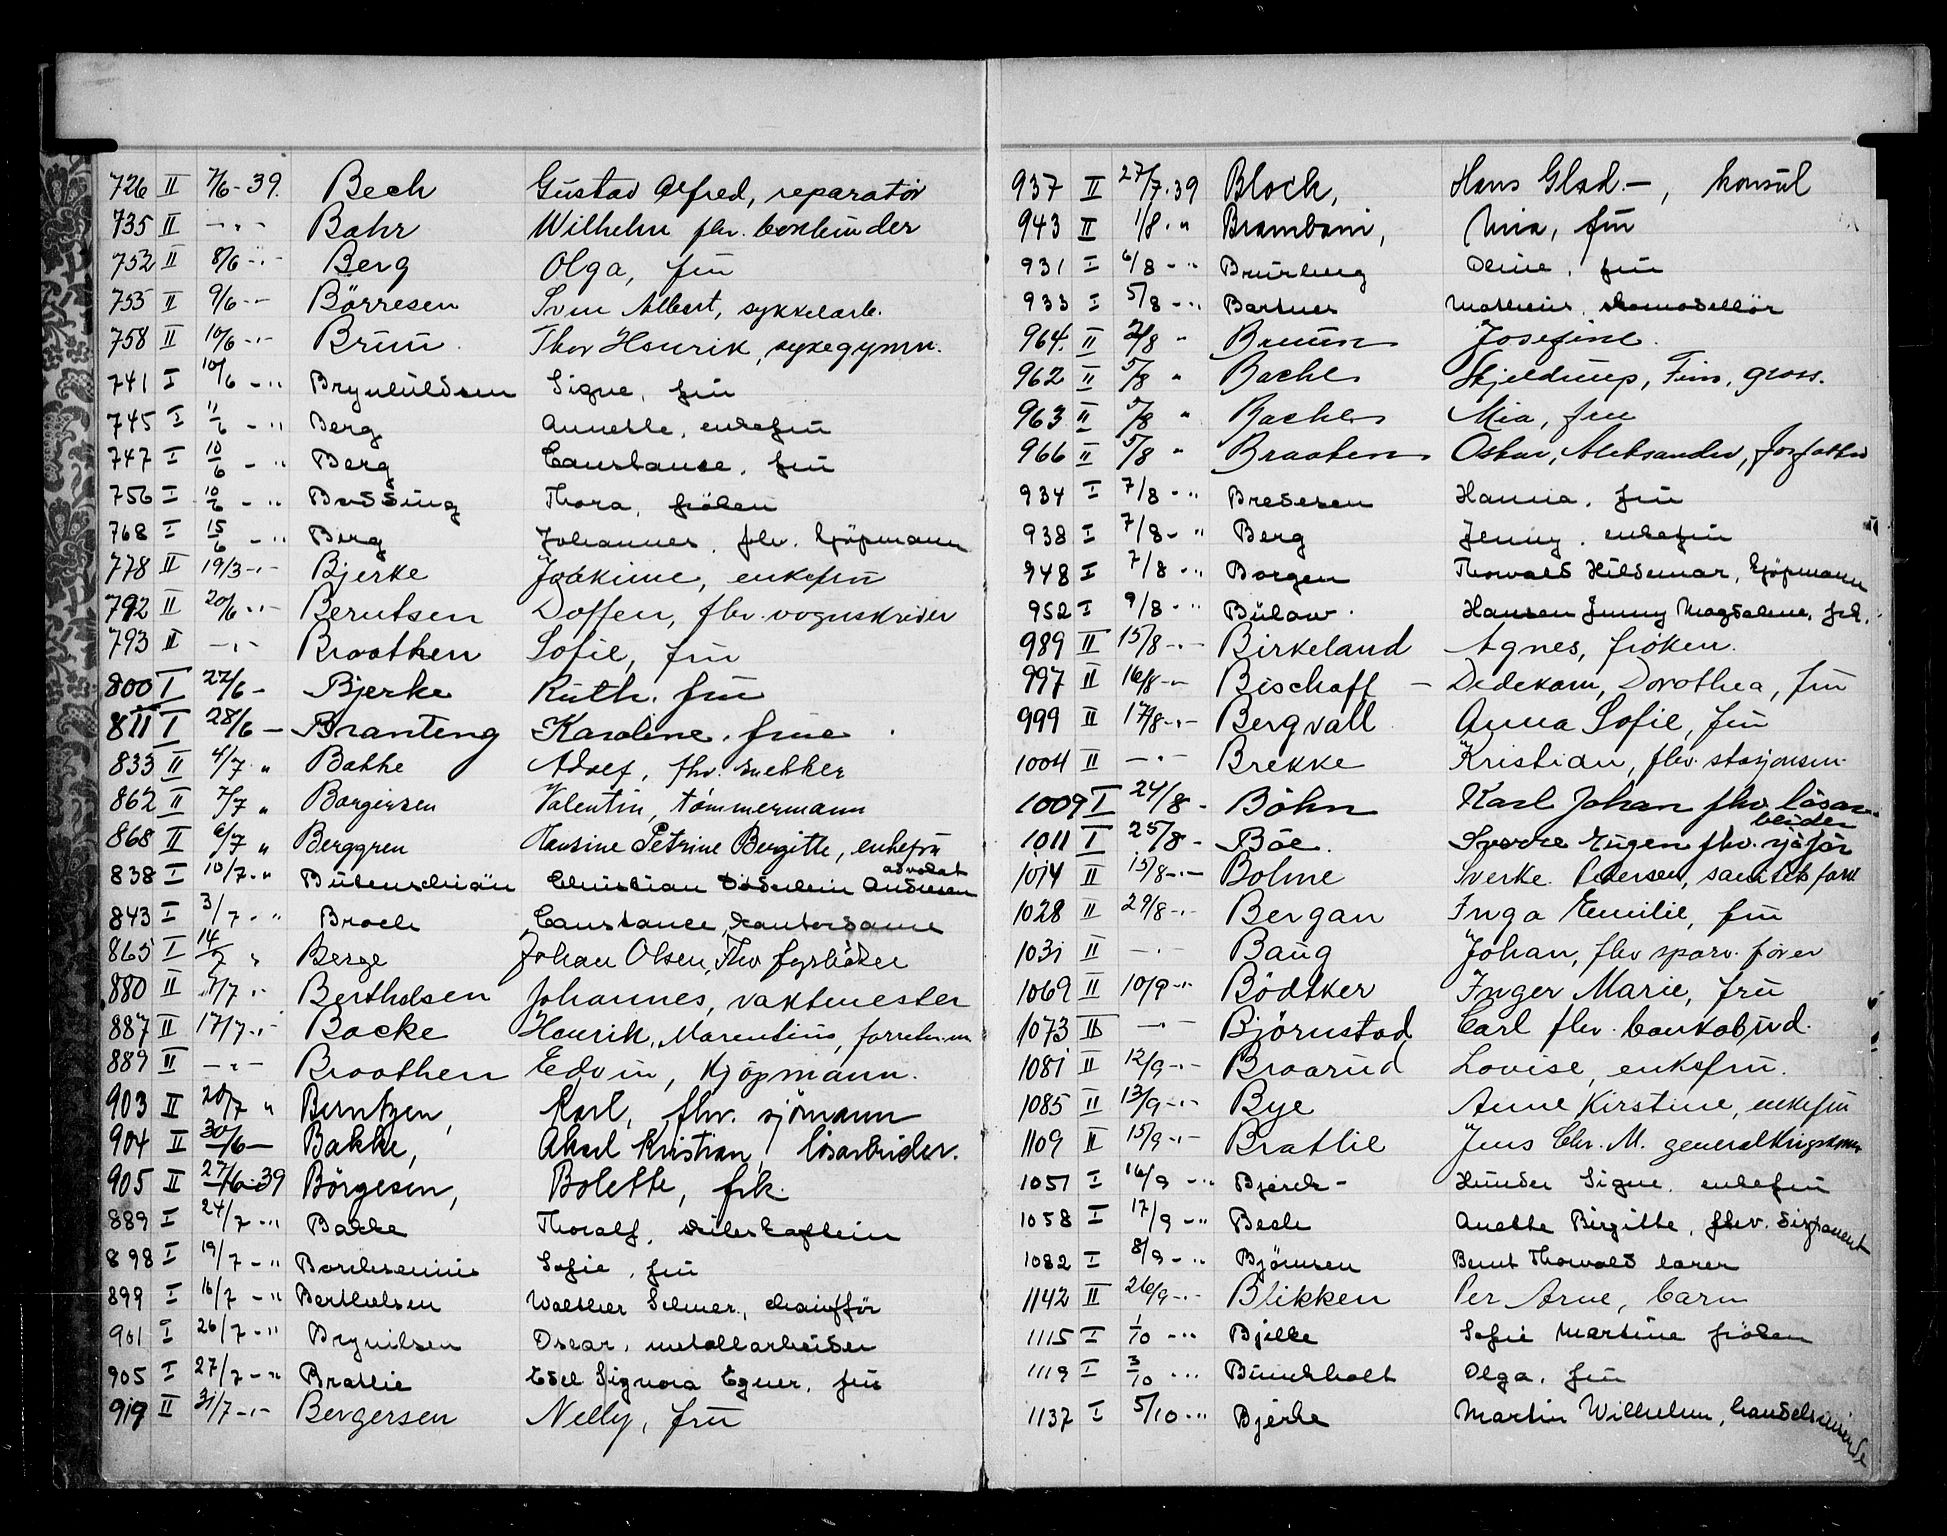 726 II 7/6-39. Bech Gustav Alfred, reparatör
735 II -"- Bahr Wilhelm fhv. bokbinder
752 II 8/6 -"- Berg Olga, frú
755 II 9/6 -"- Börresen Sven Albert, sykkelarb.
758 II 10/6 -"- Bruu Thor Henrik, sykegymn.
741 I 10/6 - " Brynhildsen Signe, frú
745 I 11/6 - " Berg Annette, enkefrú
747 I 10/6 - " Berg Constance, frú
756 I 10/6 - " Budding Thora, fröken
768 I 15/6 - " Berg Johannes, fhv. kjöpmann
778 II 19/3 -"- Bjerke Joakime, enkefrú
792 II 20/6 -"- Berntsen Doffen, fhv. vognskriver
793 II -"- Braathen Sofie, frú
800 I 22/6 - Bjerke Ruth. frú
811 I 28/6 - Branting Karoline. frue
833 II 4/7 " Bakke Adolf, fhv. snekker
862 II 7/7 " Borgersen Valentin, tömmermann
868 II 6/7 " Berggren Hansine Petrine Bergitte, enkefrú
838 I 10/7 - " Butenschiön Christian Döderlein Andresen advokat
843 I 3/7 - " Broch Constance, kontordame
865 I 14/7 " Berge Johan Olsen, Fhv fyrböter
880 II /7 " Berthelsen Johannes, vaktmester
887 II 17/7 -"- Backe Henrik, Marentius, forretn.m
889 II -"- Braathen Edvin, Kjöpmann.
903 II 20/7 " Berntzen, Karl, fhv. sjömann
904 II 30/6 - Bakke, Aksel Kristian, lösarbeider.
905 II 27/6-39 Börgesen, Bolette, frk.
889 I 24/7 - " Bakke Thoralf, skibskaptein
898 I 19/7 - " Borchsenius Sofie, frú
899 I 16/7 - " Berthelsen Walther Selmer, chaufför
901 I 26/7 - " Brynilsen Oscar, metallarbeider
905 I 27/7 - " Bratlie Edel Signora Egner, frú
919 II 31/7 -"- Bergersen Nelly, frú
937 II 27/7.39 Bloch, Hans Glad -, konsul
943 II 1/8 . " Brambani, Mia, frú
931 I 6/8 - " Brurberg Oline, frú
933 I 5/8 - " Bartnes Matheus, skomodellör
964. II 2/8 " Bruun Josefine.
962 II 5/8 " Bache Skjeldrup, Finn, gross.
963 II 5/8 " Bache Mia, fru
966 II 5/8 " Braaten Oskar, Aleksander, forfatter
934 I 7/8 - " Bredesen Hanna, frú
938 I 7/8 - " Berg Jenny, enkefrú
948 I 7/8 - " Borgen Thorvald Hildemar, kjöpmann
952 I 9/8 - " Bülow. Hansen Jenny Magdalene, frk.
989 II 15/8 -"- Birkeland Agnes, fröken.
997 II 16/8 -"- Bischoff - Dedekam, Dorothea, frú
999 II 17/8 -"- Bergvall Anna Sofie, frú
1004 II -"- Brekke Kristian, fhv. stasjonsm.
1009 I 24/8 - Böhn Karl Johan fhv lösar-
beider
1011 I 25/8 - Böe. Sverre Eugen fhv. sjåför
1014 II 15/8 -"- Bolme Sverke Pedersen,
1028 II 29/8 -"- Bergan Inga Emilie, frú
1031 II -"- Baug Johan, fhv sporv. förer
1069 II 10/9 -"- Bödtker Inger Marie, frú
1073 II -"- Björnstad Carl fhv. bankobud.
1081 II 12/9 -"- Braarud Lovise, enkefrú.
1085 II 13/9 -"- Bye Anne Kirstine, enkefrú
1109 II 15/9 -"- Bratlie Jens Chr. M. generalkrigskomm
1051 I 16/9 - " Bjerck - Hunder Signe, enkefrú
1058 I 17/9 - " Bech Anethe Birgitte, fhv. disponent
1082 I 8/9 - " Björnsen Bernt Thorvald lærer
1142 II 26/9 -"- Blikken Per Arne, barn
1115 I 1/10 - " Bjelke Sofie Martine fröken
1119 I 3/10 - " Bunckholt Olga, frú
1137 I 5/10 - " Bjerke Martin Wilhelm, handelsreisende